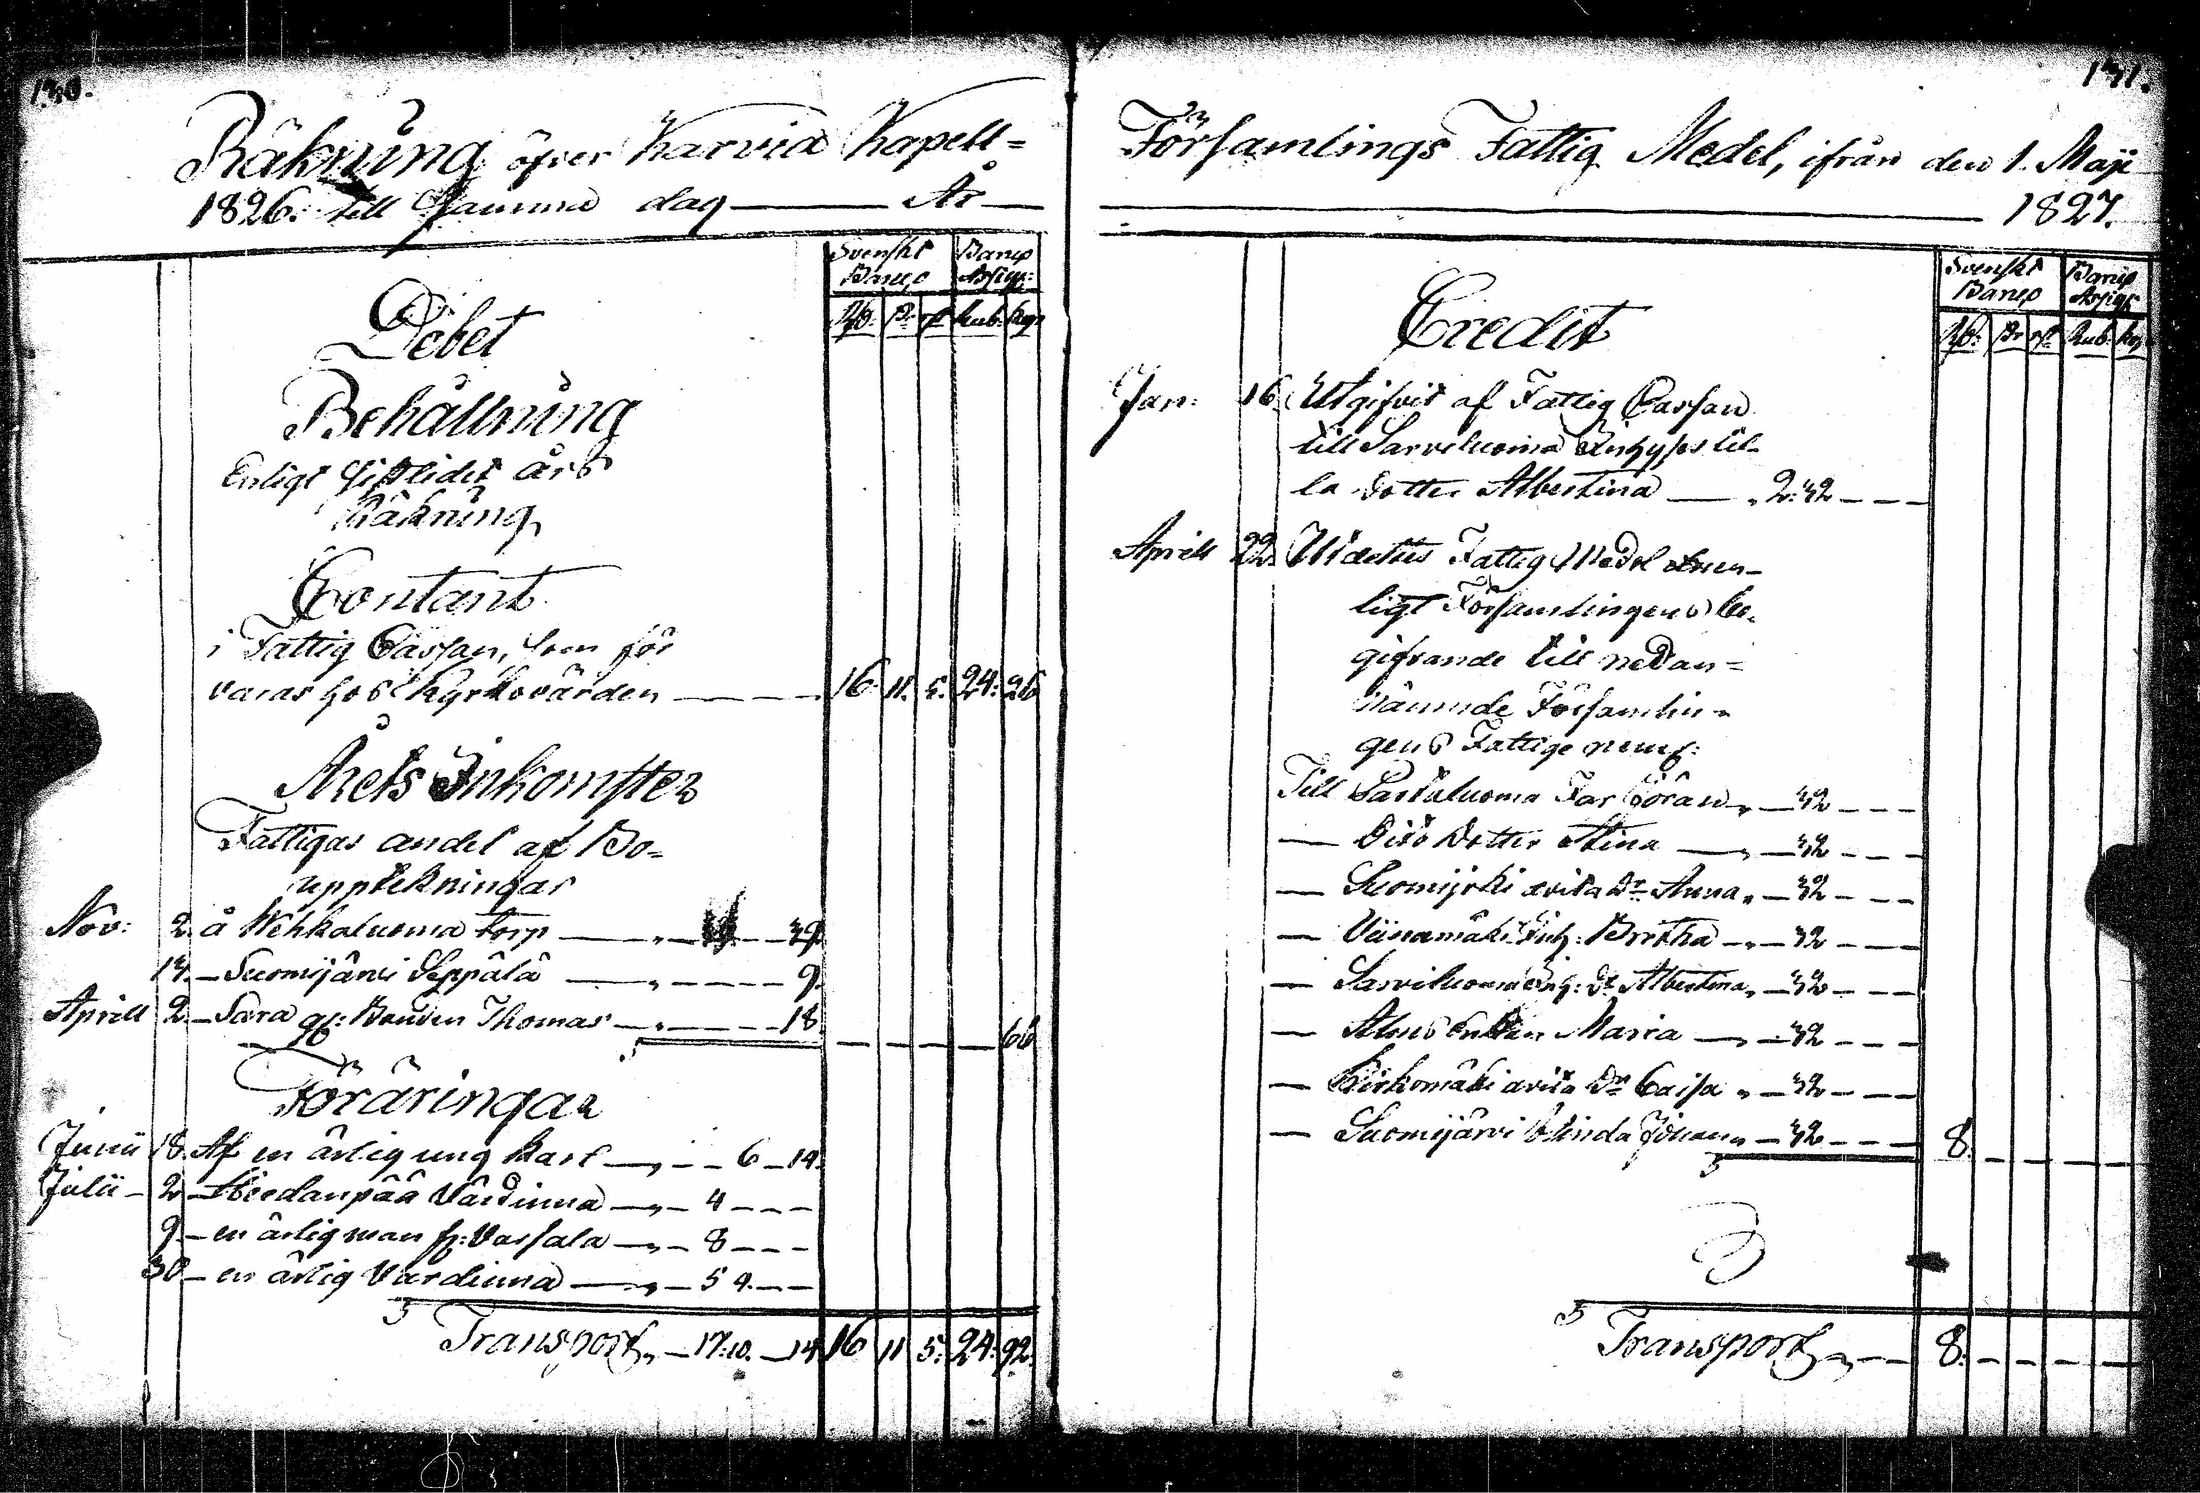 Räkning öfver Karvia Kapell=
1826. till samma dag — År —
Svenskt Banco
Banco Assign:
Rd: sk rst Rub. Kop
Debet
Behållning
Enligt sistlidet års
Räkning
Contant
i Fattig Cassan, som för
varas hos Kyrkovärden — 16. 11. 5. 24: 26
Årets Inkomster
Fattigas andel af Bo=
uppteckningar
Nov: 2. å Wehkaluoma torp — 39
17. — Suomijärvi Seppälä — 9.
Aprill 2. — Sara gf: Bonden Thomas — 18.
66
Föräringar
Junii 18. Af en ärlig ung Karl — 6 — 14.
Julii — 2 — Värdinna — 4 — — —
9. — en ärlig man fr: Vassala — 8 — — —
30 — en ärlig Värdinna — 5 4. — —
Transport — 17: 10. — 14 16 11 5: 24: 92.
141.
Församlings Fattig Medel, ifrån den 1. Maji
1827.
Svenskt Banco
Banco Assign
Rd: sk rst Rub. Kop
Credit
Jan: 16. Utgifvit af Fattig Cassan
till Sarviluoma Inhyses lil-
la dotter Albertina — 2: 42 — — —
Aprill 22. Utdeltes Fattig Medel enn-
ligt Församlingens be-
gifvande till nedan=
nämnde Församlin-
gens Fattige nemf:
Till Sarviluoma Far Göran — 42 — — —
— Dito Dotter Stina — 42 — — —
— Suomijärvi Anna — 42 — — —
— Viinamäki Inh: Britha — 42 — — —
— Sarviluoma Inh: Dr Albertina — 42 — — —
— Enkan Maria — 42 — — —
— Kirkomäki Dr Caisa — 42 — — —
— Suomijärvi blinda Johan — 42 — — — 8.
Transport — 8. — — — —